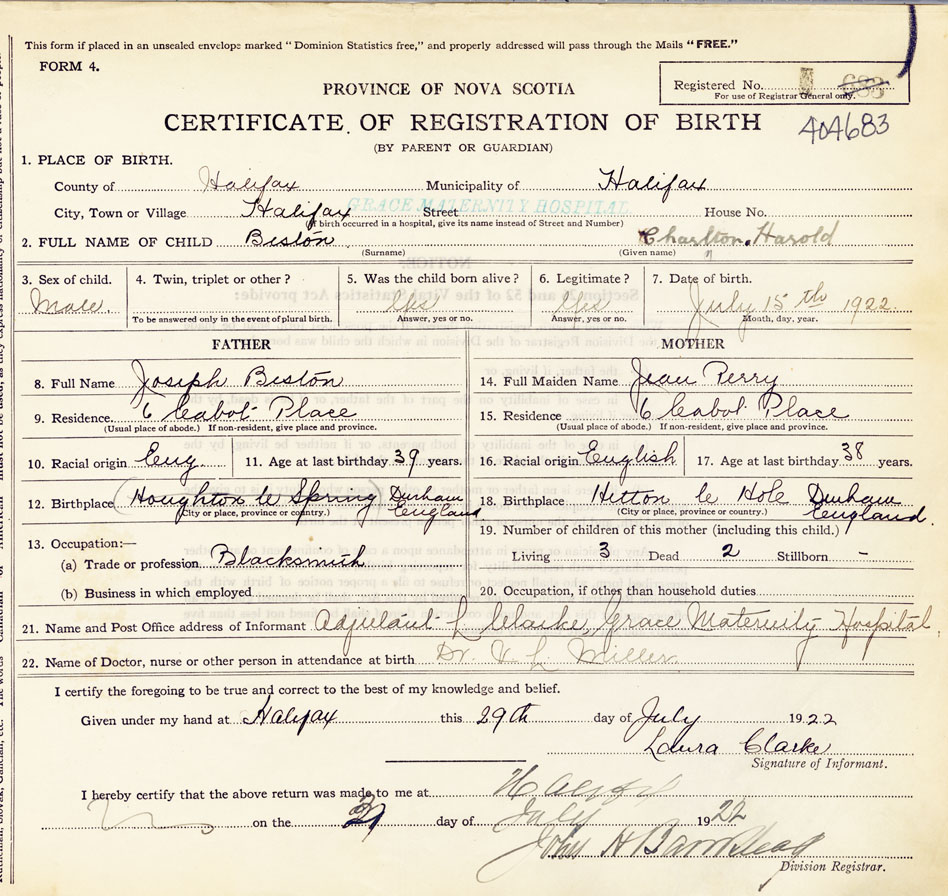 This form if placed in an unsealed envelope marked "Dominion Statistics free," and properly addressed will pass through the Mails "FREE."
FORM 4.
Registered No. 683
For use of Registrar General only.
PROVINCE OF NOVA SCOTIA
CERTIFICATE OF REGISTRATION OF BIRTH
404683
(BY PARENT OR GUARDIAN)
1. PLACE OF BIRTH.
County of Halifax Municipality of Halifax
City, Town or Village Halifax Street GRACE MATERNITY HOSPITAL House No.
(If birth occurred in a hospital, give its name instead of Street and Number)
2. FULL NAME OF CHILD Biston Charlton Harold
(Surname) (Given name)
3. Sex of child. 4. Twin, triplet or other? 5. Was the child born alive? 6. Legitimate? 7. Date of birth.
Male. Yes Yes July 15th 1922
To be answered only in the event of plural birth. Answer, yes or no. Answer, yes or no. Month, day, year.
FATHER MOTHER
8. Full Name Joseph Biston 14. Full Maiden Name Jean Perry
9. Residence 6 Cabot Place 15. Residence 6 Cabot Place
(Usual place of abode.) If non-resident, give place and province. (Usual place of abode.) If non-resident, give place and province.
10. Racial origin Eng. 11. Age at last birthday 39 years. 16. Racial origin English 17. Age at last birthday 38 years.
12. Birthplace (Houghton le Spring) Durham England 18. Birthplace Hetton le Hole Durham England.
(City or place, province or country.) (City or place, province or country.)
19. Number of children of this mother (including this child.)
13. Occupation:—
Living 3 Dead 2 Stillborn -
(a) Trade or profession Blacksmith
(b) Business in which employed 20. Occupation, if other than household duties
21. Name and Post Office address of Informant Adjutant L Clarke, Grace Maternity Hospital.
22. Name of Doctor, nurse or other person in attendance at birth Dr. V. L. Miller.
I certify the foregoing to be true and correct to the best of my knowledge and belief.
Given under my hand at Halifax this 29th day of July 1922
Laura Clarke
Signature of Informant.
I hereby certify that the above return was made to me at Halifax
on the 31 day of July 1922
John H Barnstead
Division Registrar.